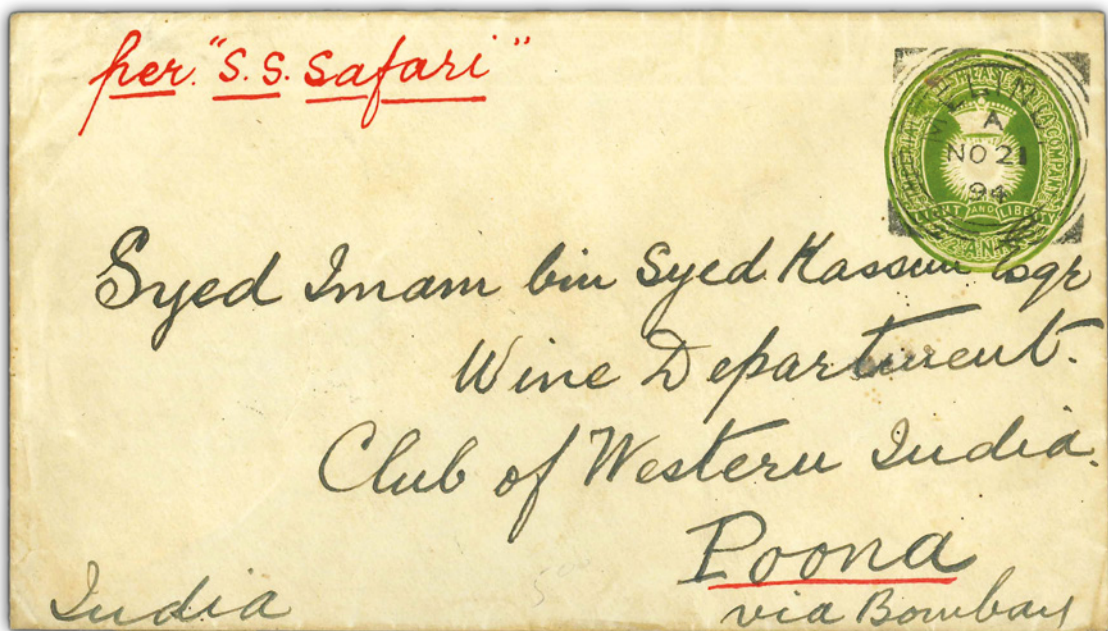 per "S.S. Safari"
IMPERIAL BRITISH EAST AFRICA COMPANY
A
NO 21
94
LIGHT AND LIBERTY
Syed Imam bin Syed Kassim Esqr
Wine Department.
Club of Western India.
Poona
India
via Bombay